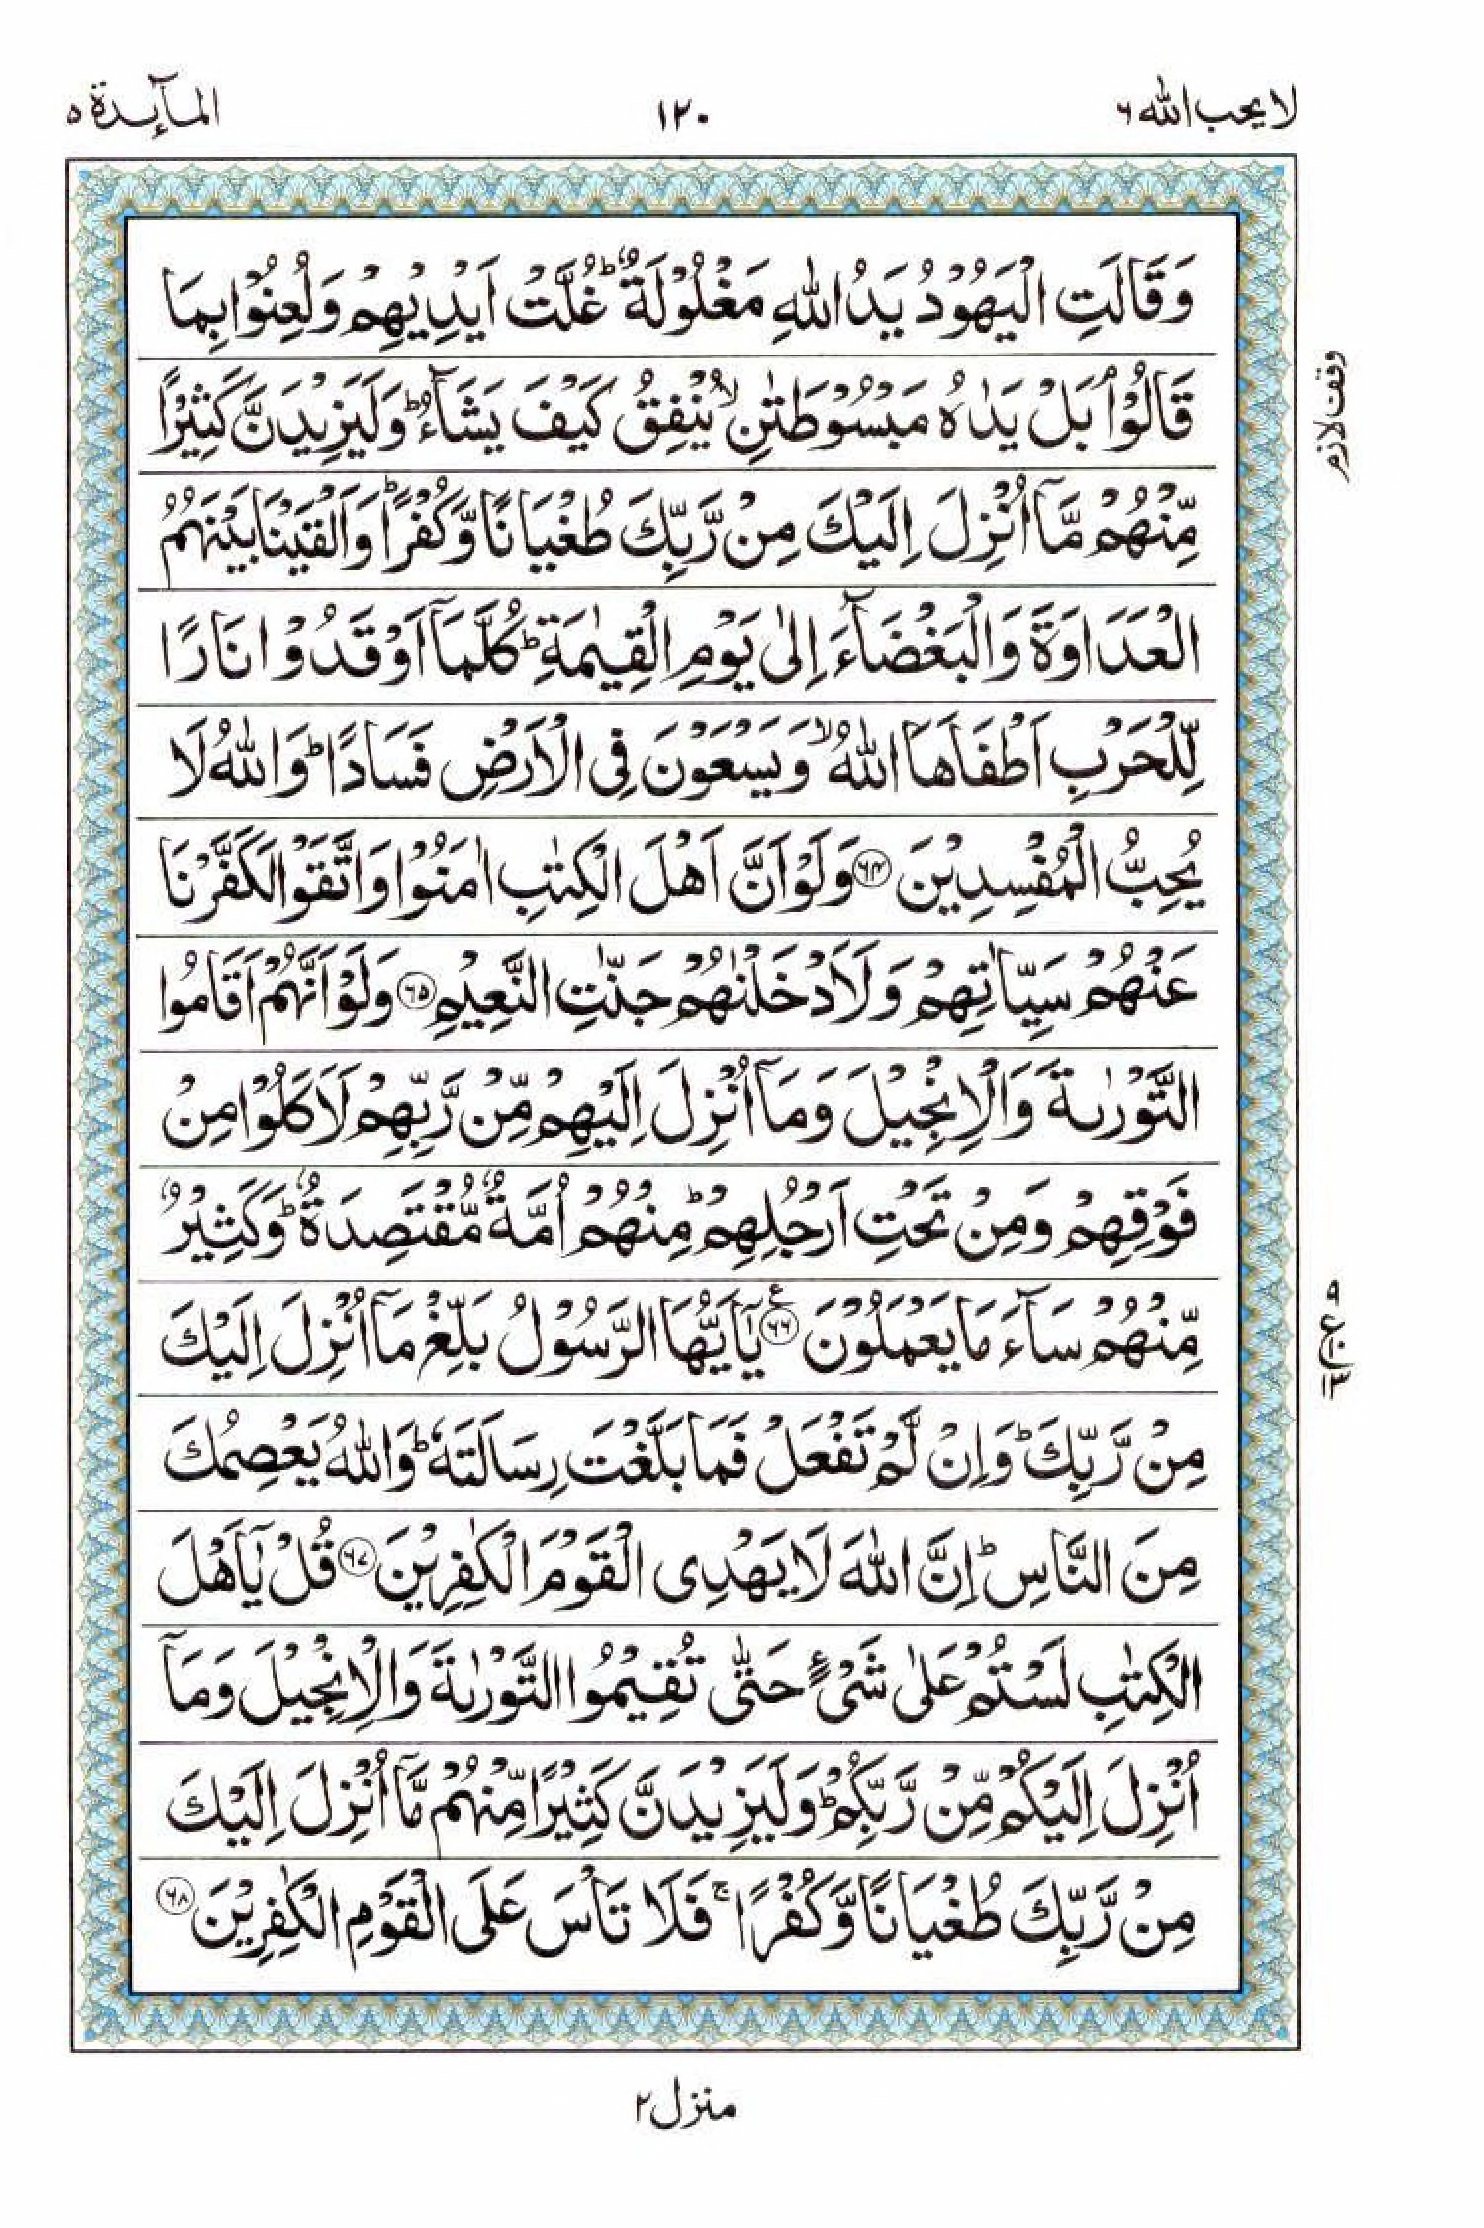 لا يحب الله ٦
١٢٠
المآىٕدة ٥
وَقَالَتِ الْيَهُوْدُ يَدُ اللّٰهِ مَغْلُوْلَةٌ ؕ غُلَّتْ اَيْدِيْهِمْ وَلُعِنُوْا بِمَا
قَالُوْا ۘ بَلْ يَدٰهُ مَبْسُوْطَتٰنِ ۙ يُنْفِقُ كَيْفَ يَشَآءُ ؕ وَلَيَزِيْدَنَّ كَثِيْرًا
وقف لازم
مِّنْهُمْ مَّاۤ اُنْزِلَ اِلَيْكَ مِنْ رَّبِّكَ طُغْيَانًا وَّكُفْرًا ؕ وَاَلْقَيْنَا بَيْنَهُمُ
الْعَدَاوَةَ وَالْبَغْضَآءَ اِلٰى يَوْمِ الْقِيٰمَةِ ؕ كُلَّمَاۤ اَوْقَدُوْا نَارًا
لِّلْحَرْبِ اَطْفَاَهَا اللّٰهُ ۙ وَيَسْعَوْنَ فِى الْاَرْضِ فَسَادًا ؕ وَاللّٰهُ لَا
يُحِبُّ الْمُفْسِدِيْنَ ۝٦٤ وَلَوْ اَنَّ اَهْلَ الْكِتٰبِ اٰمَنُوْا وَاتَّقَوْا لَكَفَّرْنَا
عَنْهُمْ سَيِّاٰتِهِمْ وَلَاَدْخَلْنٰهُمْ جَنّٰتِ النَّعِيْمِ ۝٦٥ وَلَوْ اَنَّهُمْ اَقَامُوا
التَّوْرٰىةَ وَالْاِنْجِيْلَ وَمَاۤ اُنْزِلَ اِلَيْهِمْ مِّنْ رَّبِّهِمْ لَاَكَلُوْا مِنْ
فَوْقِهِمْ وَمِنْ تَحْتِ اَرْجُلِهِمْ ؕ مِنْهُمْ اُمَّةٌ مُّقْتَصِدَةٌ ؕ وَكَثِيْرٌ
مِّنْهُمْ سَآءَ مَا يَعْمَلُوْنَ ۝٦٦ع يٰۤاَيُّهَا الرَّسُوْلُ بَلِّغْ مَاۤ اُنْزِلَ اِلَيْكَ
ع
مِنْ رَّبِّكَ ؕ وَاِنْ لَّمْ تَفْعَلْ فَمَا بَلَّغْتَ رِسَالَتَهٗ ؕ وَاللّٰهُ يَعْصِمُكَ
مِنَ النَّاسِ ؕ اِنَّ اللّٰهَ لَا يَهْدِى الْقَوْمَ الْكٰفِرِيْنَ ۝٦٧ قُلْ يٰۤاَهْلَ
الْكِتٰبِ لَسْتُمْ عَلٰى شَىْءٍ حَتّٰى تُقِيْمُوا التَّوْرٰىةَ وَالْاِنْجِيْلَ وَمَاۤ
اُنْزِلَ اِلَيْكُمْ مِّنْ رَّبِّكُمْ ؕ وَلَيَزِيْدَنَّ كَثِيْرًا مِّنْهُمْ مَّاۤ اُنْزِلَ اِلَيْكَ
مِنْ رَّبِّكَ طُغْيَانًا وَّكُفْرًا ۚ فَلَا تَاْسَ عَلَى الْقَوْمِ الْكٰفِرِيْنَ ۝٦٨
منزل ٢